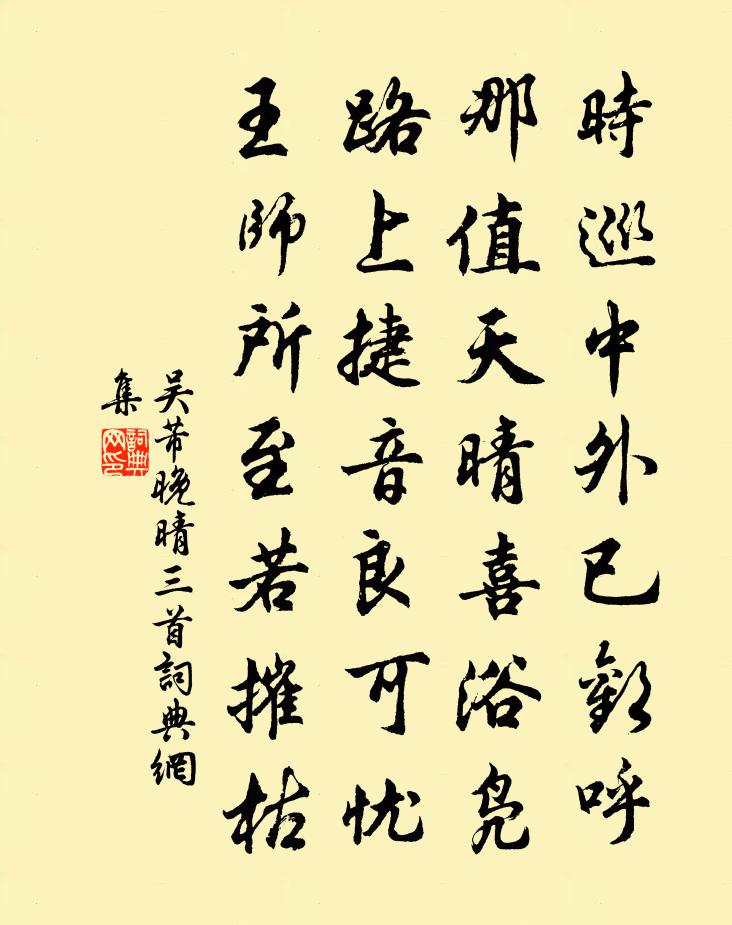 時巡中外已歡呼
那值天晴喜浴凫
路上捷音良可忧
王師所至若摧枯
吴芾晚晴三首詞典網
集
詞典网印